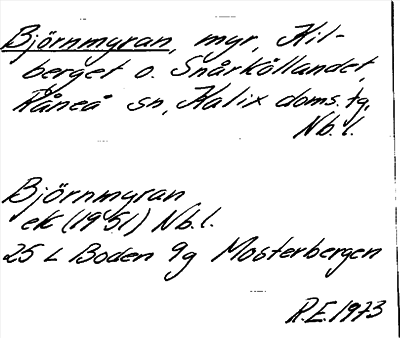 Björnmyran, myr, Kil-
berget o. Snårkällandet,
Råneå sn, Kalix doms. tg,
Nb. l.
Björnmyran
ek (1951) Nb. l.
25 L Boden 9g Mosterbergen
R.E. 1973